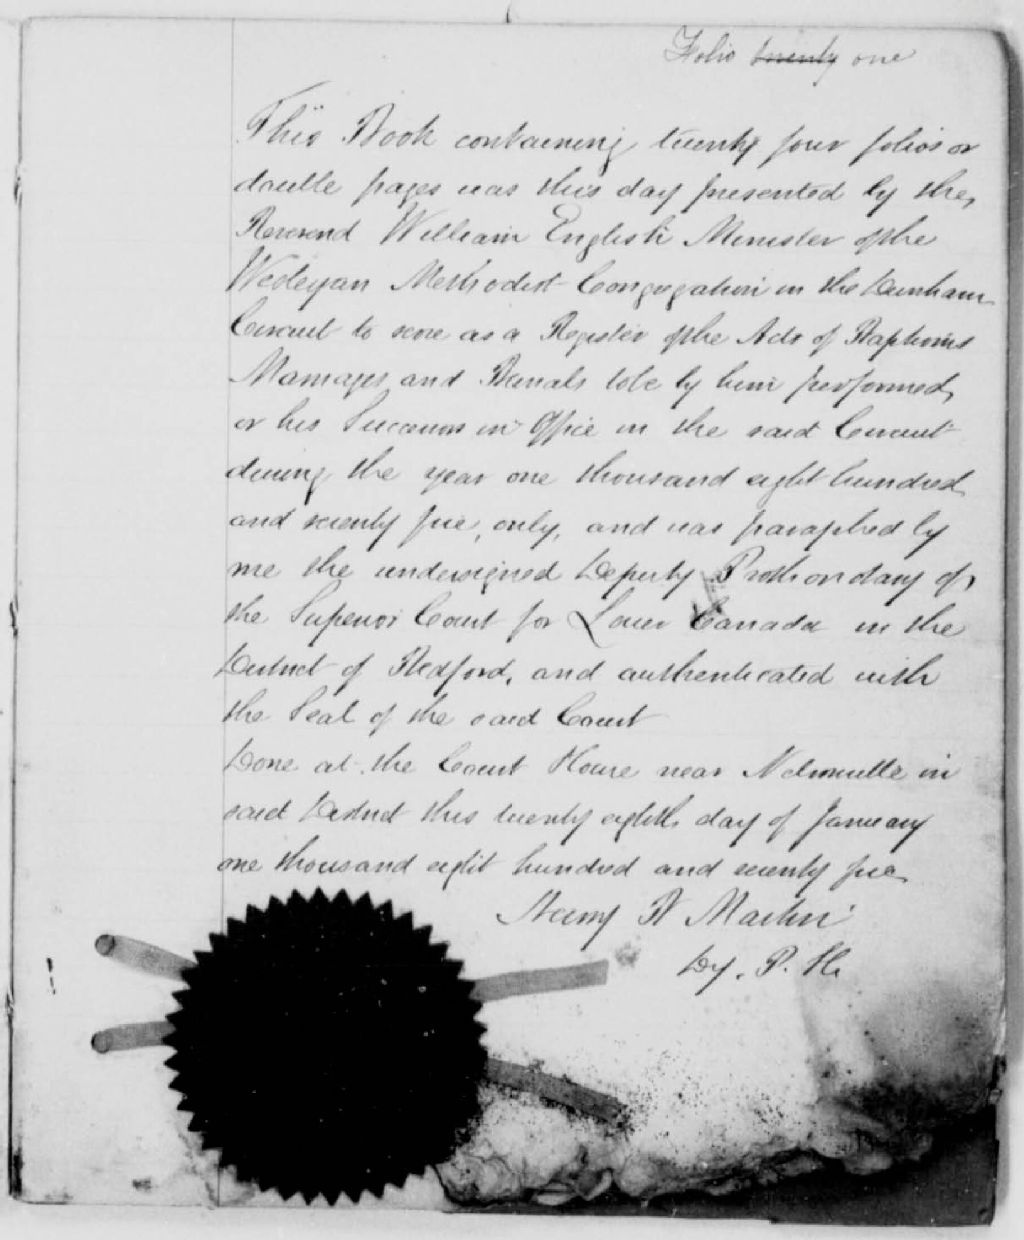 Folio twenty one
This Book containing twenty four folios or
double pages was this day presented by the
Reverend William English Minister of the
Wesleyan Methodist Congregation in the Dunham
Circuit to serve as a Register of the Acts of Baptisms
Marriages and Burials to be by him performed,
or his Successors in Office in the said Circuit
during the year one thousand eight hundred
and seventy five, only, and was paraphed by
me the undersigned Deputy Prothonotary of
the Superior Court for Lower Canada in the
District of Bedford, and authenticated with
the Seal of the said Court
Done at the Court House near Nelsonville in
said District this twenty eighth day of January
one thousand eight hundred and seventy five
Martin
Dy. P.